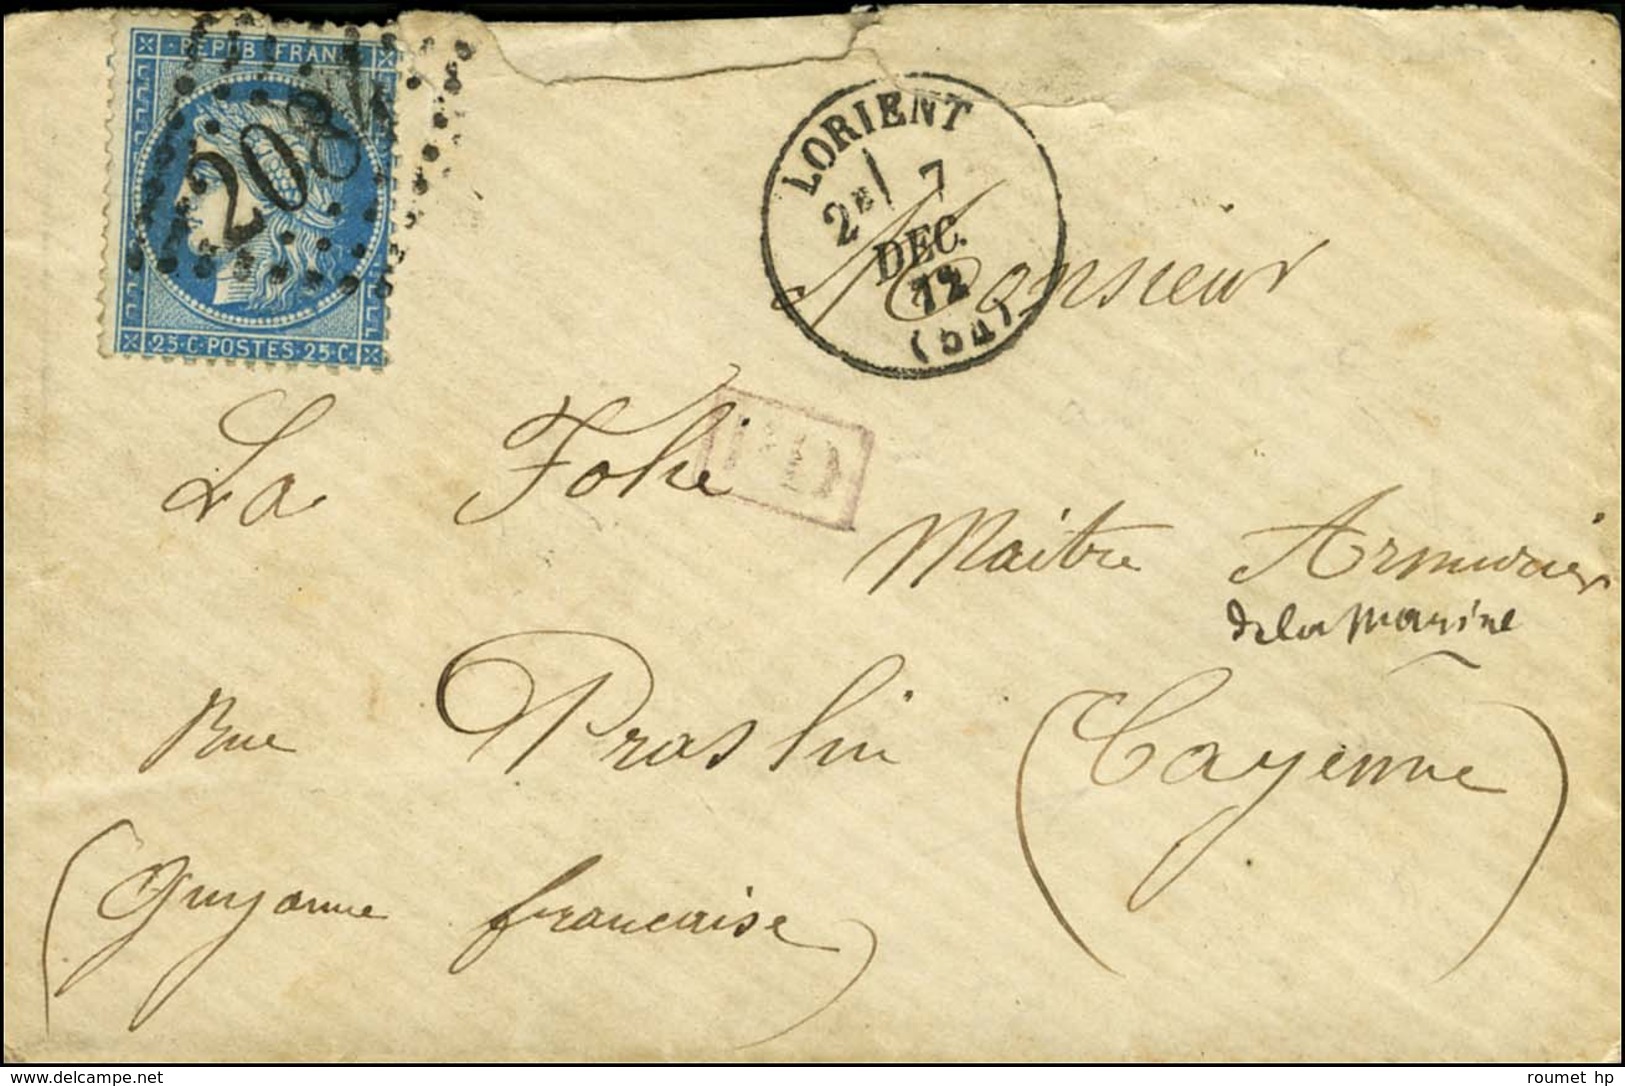 REPUB FRANC
2084
25·C·POSTES·25·C
LORIENT
2E/ 7
DEC.
72
(54)
Monsieur
PD
La Folie
Maitre Armurier
de la Marine
Rue Praslin (Cayenne)
(Guyanne française)
roumet hp